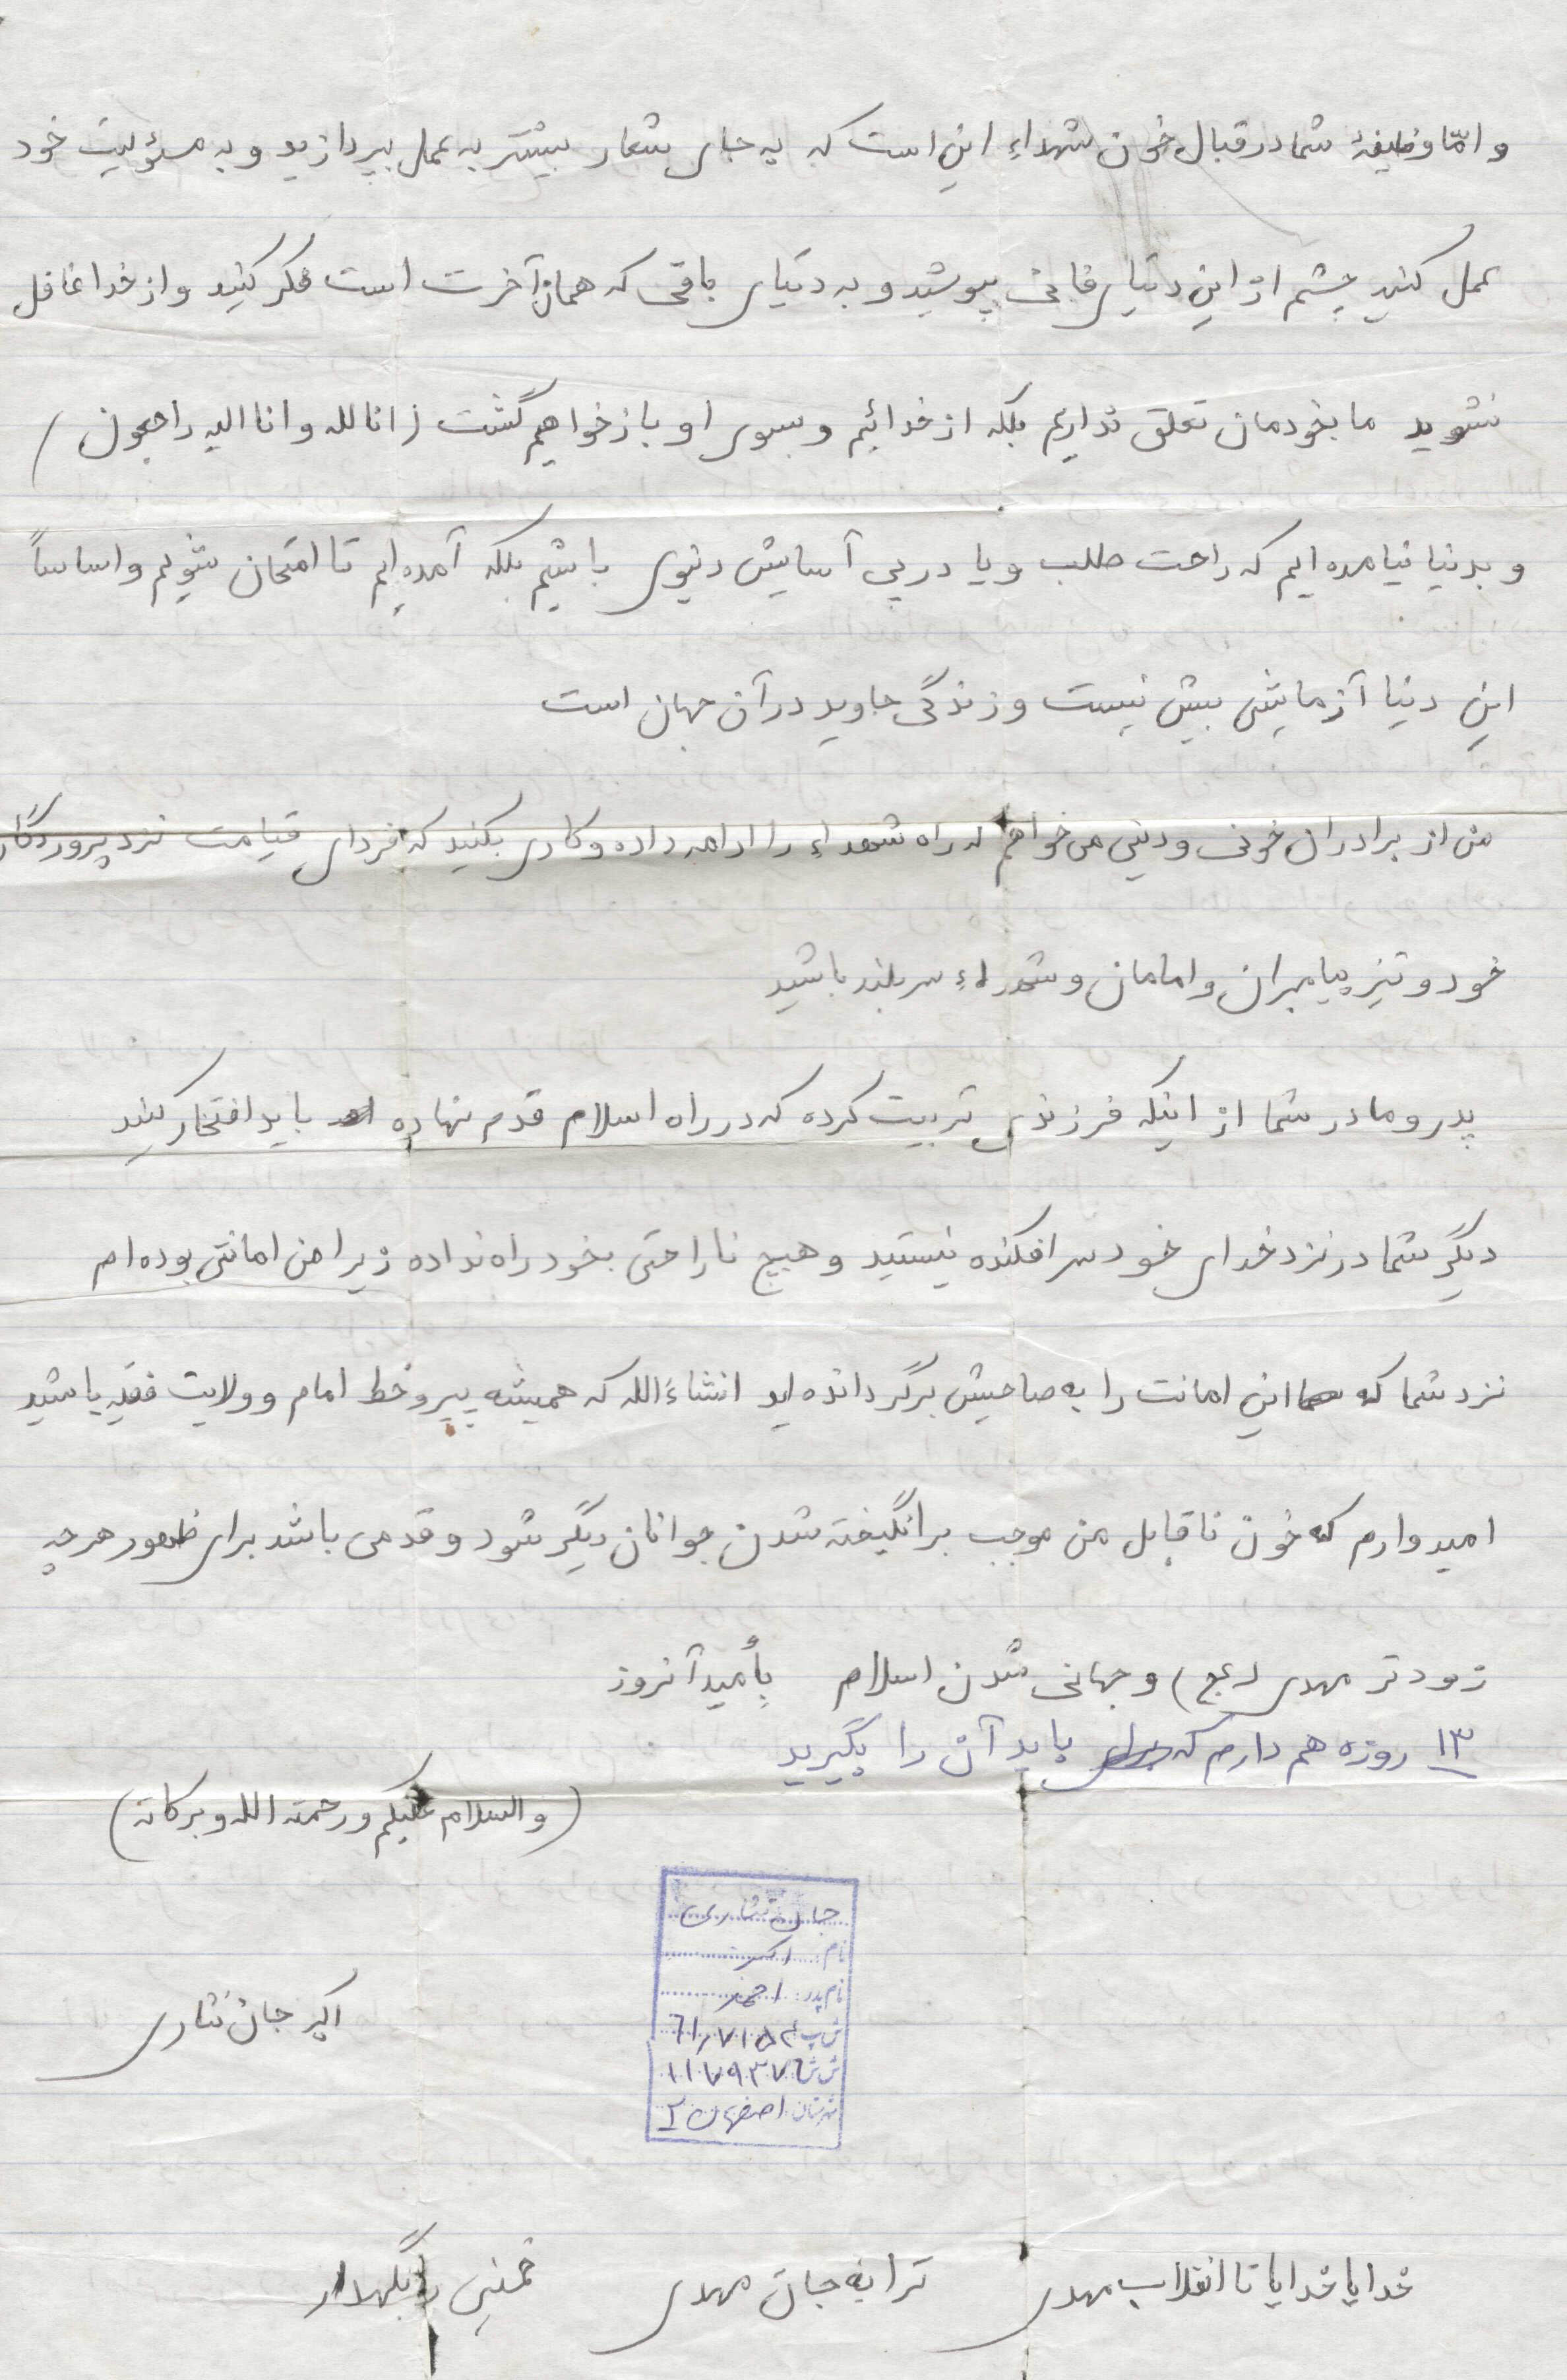 و امّا وظیفهٔ شما در قبال خون شهداء این است که به جای شعار بیشتر به عمل بپردازید و به مسؤلیت خود
عمل کنید چشم از این دنیای فانی بپوشید و به دنیای باقی که همان آخرت است فکر کنید و از خدا غافل
نشوید ما بخودمان تعلق نداریم بلکه از خدائیم و بسوی او باز خواهیم گشت (انا لله و انا الیه راجعون)
و بدنیا نیامده ایم که راحت طلب و یا در پی آسایش دنیوی باشیم بلکه آمده ایم تا امتحان شویم و اساساً
این دنیا آزمایش بیش نیست و زندگی جاوید در آن جهان است
من از برادران خونی و دینی می خواهم که راه شهداء را ادامه داده و کاری بکنید که فردای قیامت نزد پروردگار
خود و نیز پیامبران و امامان و شهداء سربلند باشید
پدر و مادر شما از اینکه فرزندی تربیت کرده که در راه اسلام قدم نهاده باید افتخار کنید
دیگر شما در نزد خدای خود سرافکنده نیستید و هیچ ناراحتی بخود راه نداده زیرا من امانتی بوده ام
نزد شما که این امانت را به صاحبش برگردانده اید انشاءالله که همیشه پیرو خط امام و ولایت فقیه باشید
امیدوارم که خون ناقابل من موجب برانگیخته شدن جوانان دیگر شود و قدمی باشد برای ظهور هرچه
زودتر مهدی (عج) و جهانی شدن اسلام بأمید آنروز
۱۳ روزه هم دارم که باید آن را بگیرید
(والسلام علیکم و رحمته الله و برکاته)
جان نثاری
نام: اکبر
نام پدر: احمد
ش پ ۶۱٫۷۱۵۴
ش ش ۱۱۷۹۳۷۶
شهرستان اصفهان ۲
اکبر جان نثاری
خدایا خدایا تا انقلاب مهدی ترا به جان مهدی خمینی را نگهدار